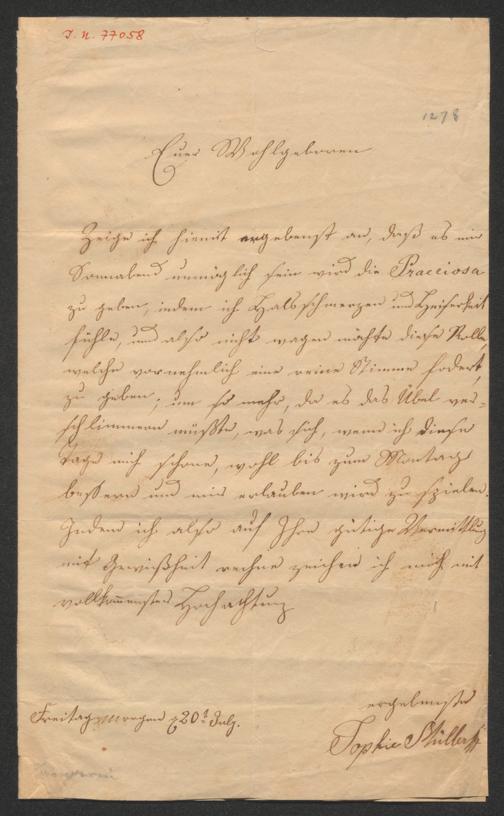 I. N. 77058
1278
Euer Wohlgeboren
Zeige ich hiemit ergebenst an, daß es mir
Sonnabend unmöglich sein wird die Precciosa
zu geben, indem ich Halsschmerzen und Heiserkeit
fühle, und also nicht wagen möchte diese Rolle,
welche vornehmlich eine reine Stimme fodert,
zu geben; um so mehr, da es das Übel ver-
schlimmern müßte, was sich, wenn ich diese
Tage mich schone, wohl bis zum Montag
bessern und mir erlauben wird zu spielen.
Indem ich also auf Ihre gütige Vermittlung
mit Gewißheit rechne zeichne ich mich mit
vollkommenster Hochachtung
ergebenste
Freitag morgen 20t July.
Sophie Müller